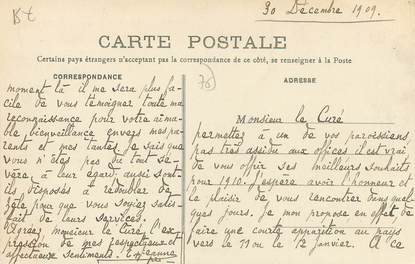 30 Décembre 1909.
CARTE POSTALE
Certains pays étrangers n'acceptant pas la correspondance de ce côté, se renseigner à la Poste
CORRESPONDANCE
ADRESSE
Monsieur le Curé
permettez à un de vos paroissiens
pas très assidu aux offices il est vrai
de vous offrir ses meilleurs souhaits
pour 1910. J'espère avoir l'honneur et
le plaisir de vous rencontrer dans quel-
ques jours. Je me propose en effet de
faire une courte apparition au pays
vers le 11 ou le 12 janvier. A ce
moment là il me sera plus fa-
cile de vous témoigner toute ma
reconnaissance pour votre aima-
ble bienveillance envers mes pa-
rents et mes tantes. Je sais que
vous n'êtes pas du tout sé-
vère à leur égard, aussi sont-
ils disposés à redoubler de
zèle pour que vous soyez satis-
fait de leurs services.
Agréez Monsieur le Curé l'ex-
pression de mes respectueux et
affectueux sentiments.